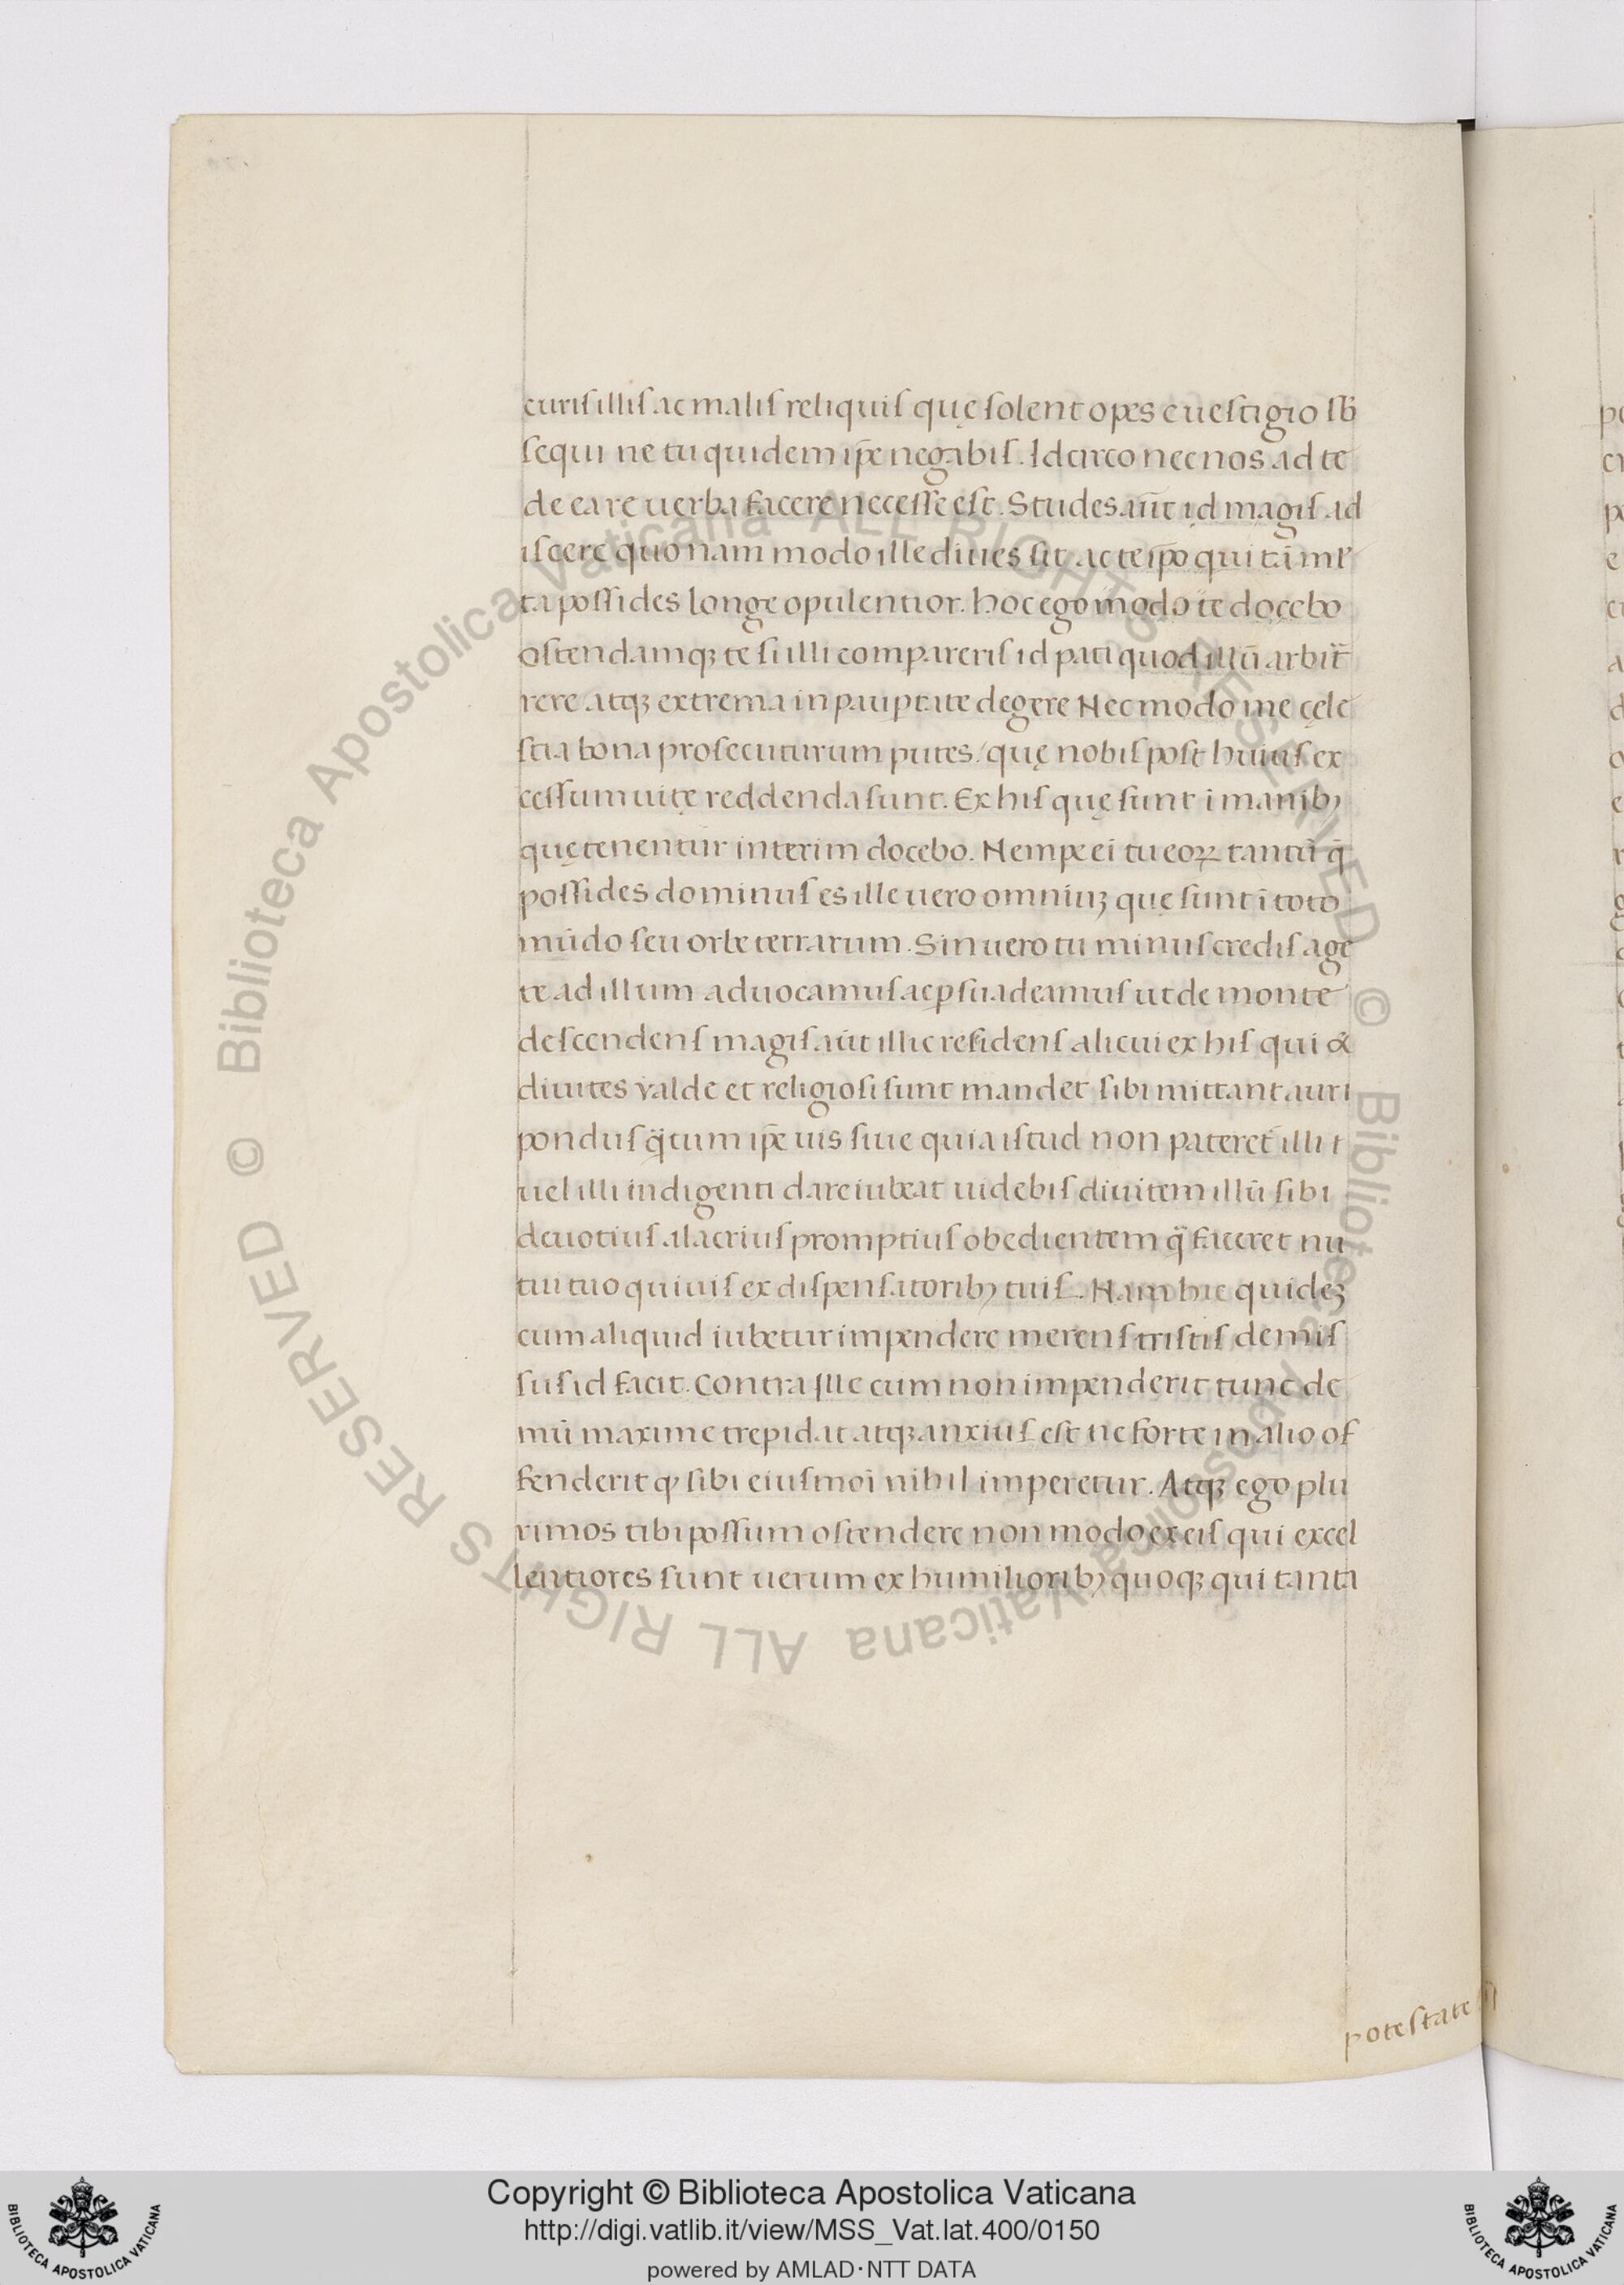 curis illis ac malis reliquis quę solent opes e uestigio sb̄
sequi ne tu quidem ip̄e negabis. Idcirco nec nos ad te
de ea re uerba facere necesse est. Studes aūt id magis ad
iscere quonam modo ille diues sit ac te ip̄o qui tā ml̄
ta possides longe opulentior. hoc ego modo te docebo
ostendamqꝫ te si illi compareris id pati quod illū arbit̄
rere atqꝫ extrema in paupertate degere Nec modo me cęle
stia bona prosecuturum putes / quę nobis post huius ex
cessum uitę reddenda sunt. Ex his quę sunt ī manibꝫ
quę tenentur interim docebo. Nempe ei tu eoꝝ tantū q̄
possides dominus es ille uero omniuꝫ quę sunt ī toto
mūdo seu orbe terrarum. Sin uero tu minus credis age
te ad illum aduocamus ac ꝑsuadeamus ut de monte
descendens magis aūt illic residens alicui ex his qui &
diuites valde et religiosi sunt mandet sibi mittant auri
pondus q̄tum ip̄e uis siue quia istud non pateret̄ illi t
uel illi indigenti dare iubeat uidebis diuitem illū sibi
deuotius alacrius promptius obedientem q̄ faceret nu
tui tuo quiuis ex dispensatoribꝫ tuis. Nam hic quideꝫ
cum aliquid iubetur impendere merens tristis demis
sus id facit. Contra ille cum non impenderit tunc de
mū maxime trepidat atqꝫ anxius est ne forte in alio of
fenderit ꝙ sibi eiusmōi nihil imperetur. Atqꝫ ego plu
rimos tibi possum ostendere non modo ex eis qui excel
lentiores sunt uerum ex humilioribꝫ quoqꝫ qui tanta
potestate
Copyright © Biblioteca Apostolica Vaticana
http://digi.vatlib.it/view/MSS_Vat.lat.400/0150
powered by AMLAD·NTT DATA
BIBLIOTECA APOSTOLICA VATICANA
BIBLIOTECA APOSTOLICA VATICANA
© Biblioteca Apostolica Vaticana ALL RIGHTS RESERVED © Biblioteca Apostolica Vaticana ALL RIGHTS RESERVED